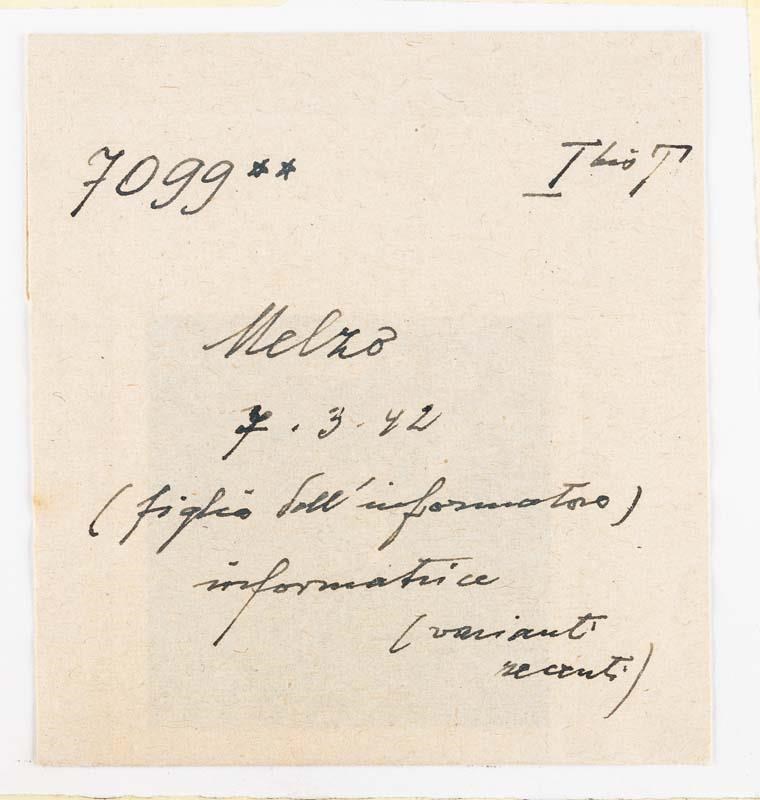 7099** I bis T
Melzo
7.3.42
(figlia dell'informatore)
informatrice
(varianti
recenti)